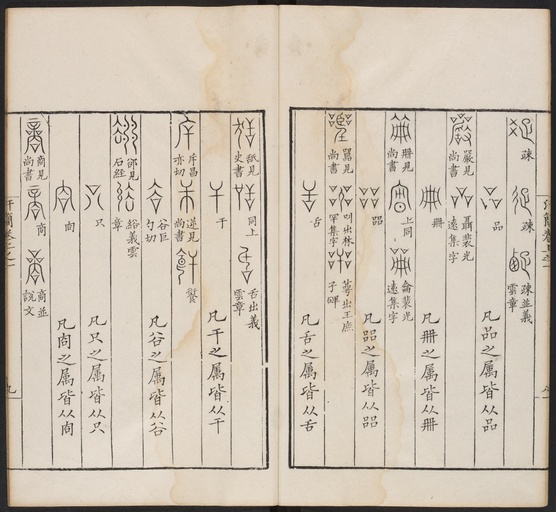 疎 疎 疎並義雲章
品 凡品之属皆从品
嚴見尚書 聶裴光遠集字
冊 凡冊之属皆从冊
冊見尚書 上同 侖裴光遠集字
㗊 凡㗊之属皆从㗊
嚚見尚書 叫出林罕集字 蕚出王庶子碑
舌 凡舌之属皆从舌
舐見史書 同上 舌出義雲章
干 凡干之属皆从干
斥昌亦切 逆見尚書
谷巨勺切 凡谷之属皆从谷
卻見石經 綌義雲章
只 凡只之属皆从只
㕯 凡㕯之属皆从㕯
商見尚書 商 商並說文